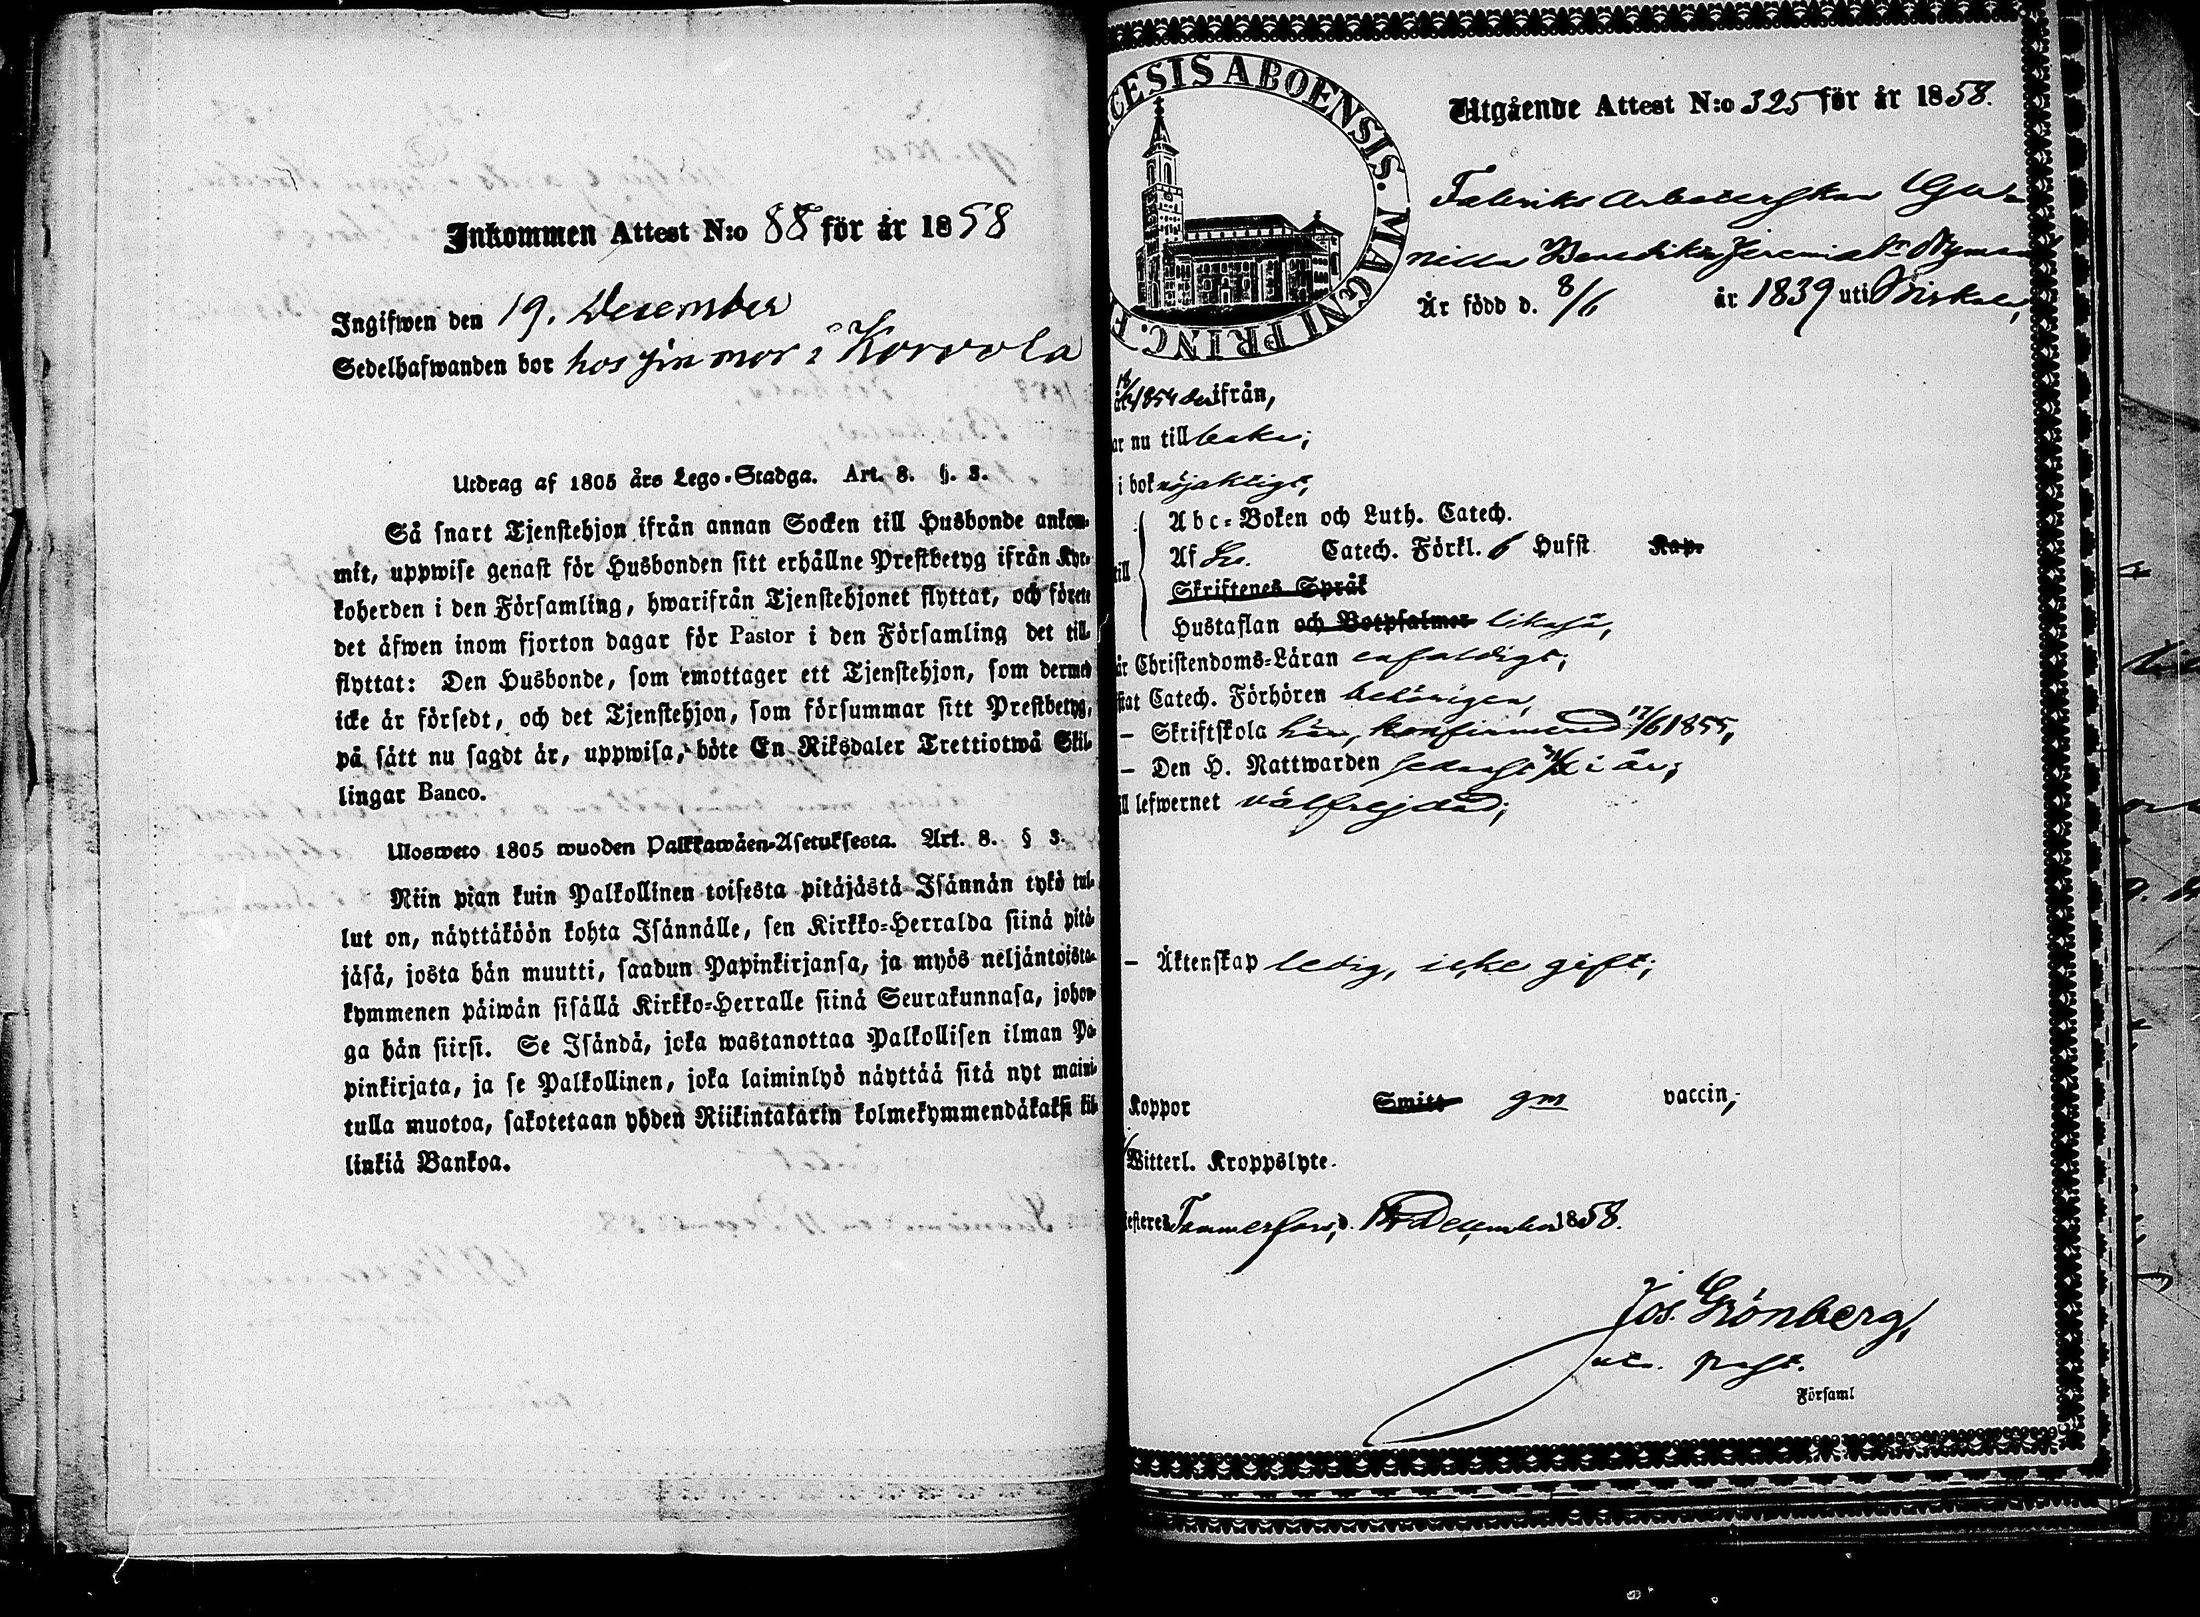 Inkommen Attest N:o 88 för år 1858
Ingifwen den 19. December
Sedelhafwanden bor hos sin mor i Korvola
Utdrag af 1805 års Lego-Stadga. Art. 8. §. 3.
Så snart Tjenstehjon ifrån annan Socken till Husbonde ankom-
mit, uppwise genast för Husbonden sitt erhållne Prestbetyg ifrån Kyr-
koherden i den Församling, hwarifrån Tjenstehjonet flyttat, och förete
det äfwen inom fjorton dagar för Pastor i den Församling det till-
flyttat: Den Husbonde, som emottager ett Tjenstehjon, som dermed
icke är försedt, och det Tjenstehjon, som försummar sitt Prestbetyg,
på sätt nu sagdt är, uppwisa, böte En Riksdaler Trettiotwå Skil-
lingar Banco.
Ulosweto 1805 wuoden Palkkawäen-Asetuksesta. Art. 8. § 3.
Niin pian kuin Palkollinen toisesta pitäjästä Isännän tykö tul-
lut on, näyttäköön kohta Isännälle, sen Kirkko-Herralda siinä pitä-
jäsä, josta hän muutti, saadun Papinkirjansa, ja myös neljäntoista-
kymmenen päiwän sisällä Kirkko-Herralle siinä Seurakunnasa, johon-
ga hän siirsi. Se Isändä, joka wastanottaa Palkollisen ilman Pa-
pinkirjata, ja se Palkollinen, joka laiminlyö näyttää sitä nyt maini-
tulla muotoa, sakotetaan yhden Riikintalarin kolmekymmendäkaksi kil-
linkiä Bankoa.
CESIS ABOENSIS. MAGNI PRINC. F
Utgående Attest N:o 325 för år 1858.
Fabriks Arbeterskan Gu
nilla Benedikta Jeremiæ Dr Nyman
Är född d. 8/6 år 1839 uti Birkala,
18/ 1854 ifrån,
ar nu tillbaka;
i bok nöjaktigt,
Abc-Boken och Luth. Catech.
till Af Catech. Förkl. 6 Hufst Kap.
Skriftenes Språk
Hustaflan och Botpsalmer likaså,
år Christendoms-Läran enfaldigt;
stat Catech. Förhören behörigen,
– Skriftskola här, konfirmerad 17/6 1855,
– Den H. Nattwarden sednast i år;
ll lefwernet välfrejdad;
– Äktenskap ledig, icke gift;
Koppor Smitt gm vaccin,
Witterl. Kroppslyte.
esteres Tammerfors, d. December 1858.
Jos. Grönberg,
past.
Församl